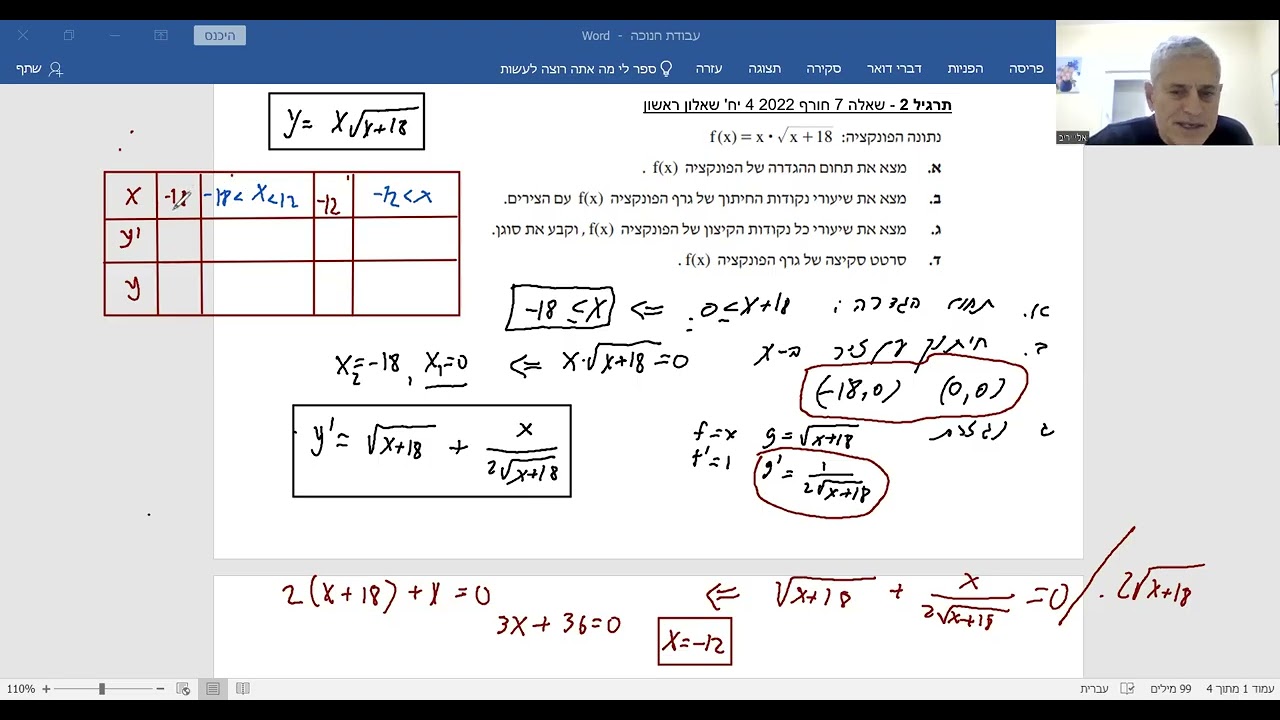 היכנס
עבודת חנוכה - Word
פריסה הפניות דברי דואר סקירה תצוגה עזרה ספר לי מה אתה רוצה לעשות שתף
תרגיל 2 - שאלה 7 חורף 2022 4 יח' שאלון ראשון
נתונה הפונקציה: f(x) = x · √x+18
א. מצא את תחום ההגדרה של הפונקציה f(x) .
ב. מצא את שיעורי נקודות החיתוך של גרף הפונקציה f(x) עם הצירים.
ג. מצא את שיעורי כל נקודות הקיצון של הפונקציה f(x) , וקבע את סוגן.
ד. סרטט סקיצה של גרף הפונקציה f(x) .
y = x√x+18
x -18 -18< x <12 -12 -12<x
y'
y
א. תחום הגדרה: 0≤x+18 ⇐ -18≤x
ב. חיתוך עם ציר ה-x
x·√x+18=0 ⇐ x₁=0 , x₂=-18
(-18,0) (0,0)
ג נגזרת
f=x g=√x+18
f'=1 g'= 1/2√x+18
y' = √x+18 + x/2√x+18
√x+18 + x/2√x+18 =0 / ·2√x+18
⇐ 2(x+18)+x=0
3x+36=0
x=-12
110%
עברית
99 מילים
עמוד 1 מתוך 4